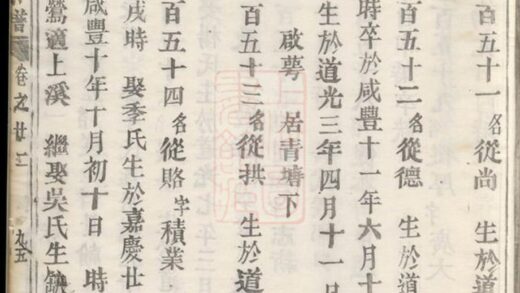 百五十一 名從尚 生於道
百五十二 名從德 生於道
時卒於咸豐十一年六月十
生於道光三年四月十一日
啟蕚 居青塘下
百五十三 名從拱 生於道
百五十四 名從賂 字積業
戌時 娶季氏生於嘉慶廿
咸豐十年十月初十日 時
鶯適上溪 繼娶吳氏生缺
譜 卷之廿三 九五